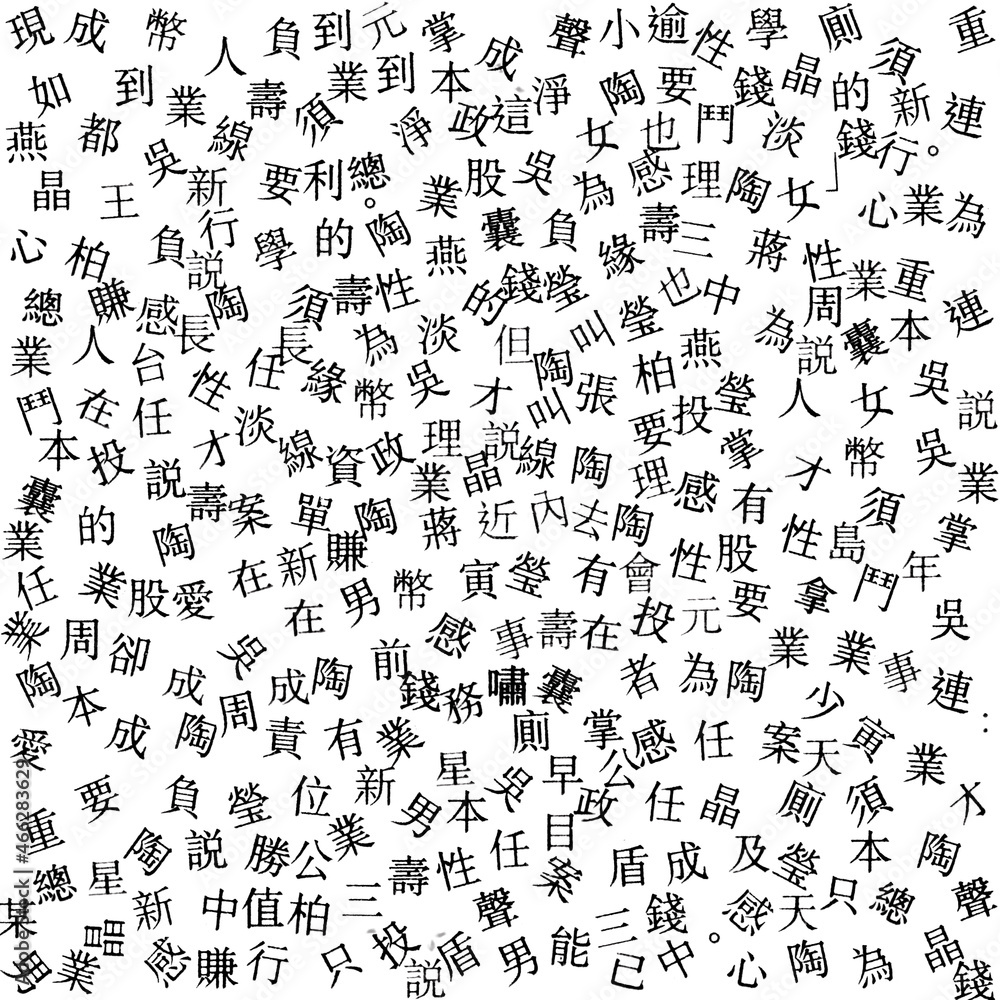 現成幣人負到元掌成聲小逾性學廁須重
如到業壽須業到本淨陶要錢晶的新連
燕都吳線淨政這女也鬥淡錢行。
晶王新要利總。業股吳為感理陶女」心業為
心柏負行學的陶燕囊負緣壽三蔣性業重
說
總賺感長陶須壽性的錢瑩也中為周囊本連
業人台任長緣為淡但陶叫瑩柏燕說吳
鬥在任性淡幣吳才叫張要投瑩人女說
本投說才線資政理說線陶掌才幣吳業
囊的壽案單陶業晶蔣近內去陶理感有須掌
業陶在新賺寅瑩有會性股性島年
任業股愛在男幣感事壽在投元要拿鬥吳
業周卻吳前者為陶業業事連
陶本成周成陶錢務嘯囊少
愛成陶責有業廁掌感任案天寅業
要負瑩位新星吳早公
重男本政任晶廁須
陶說勝公業壽性任目案盾成及瑩本陶
總星新中值柏三聲三錢感天只總聲
晶感賺行只投說盾男能已中。心陶為晶錢
業
Adobe Stock | #466283629